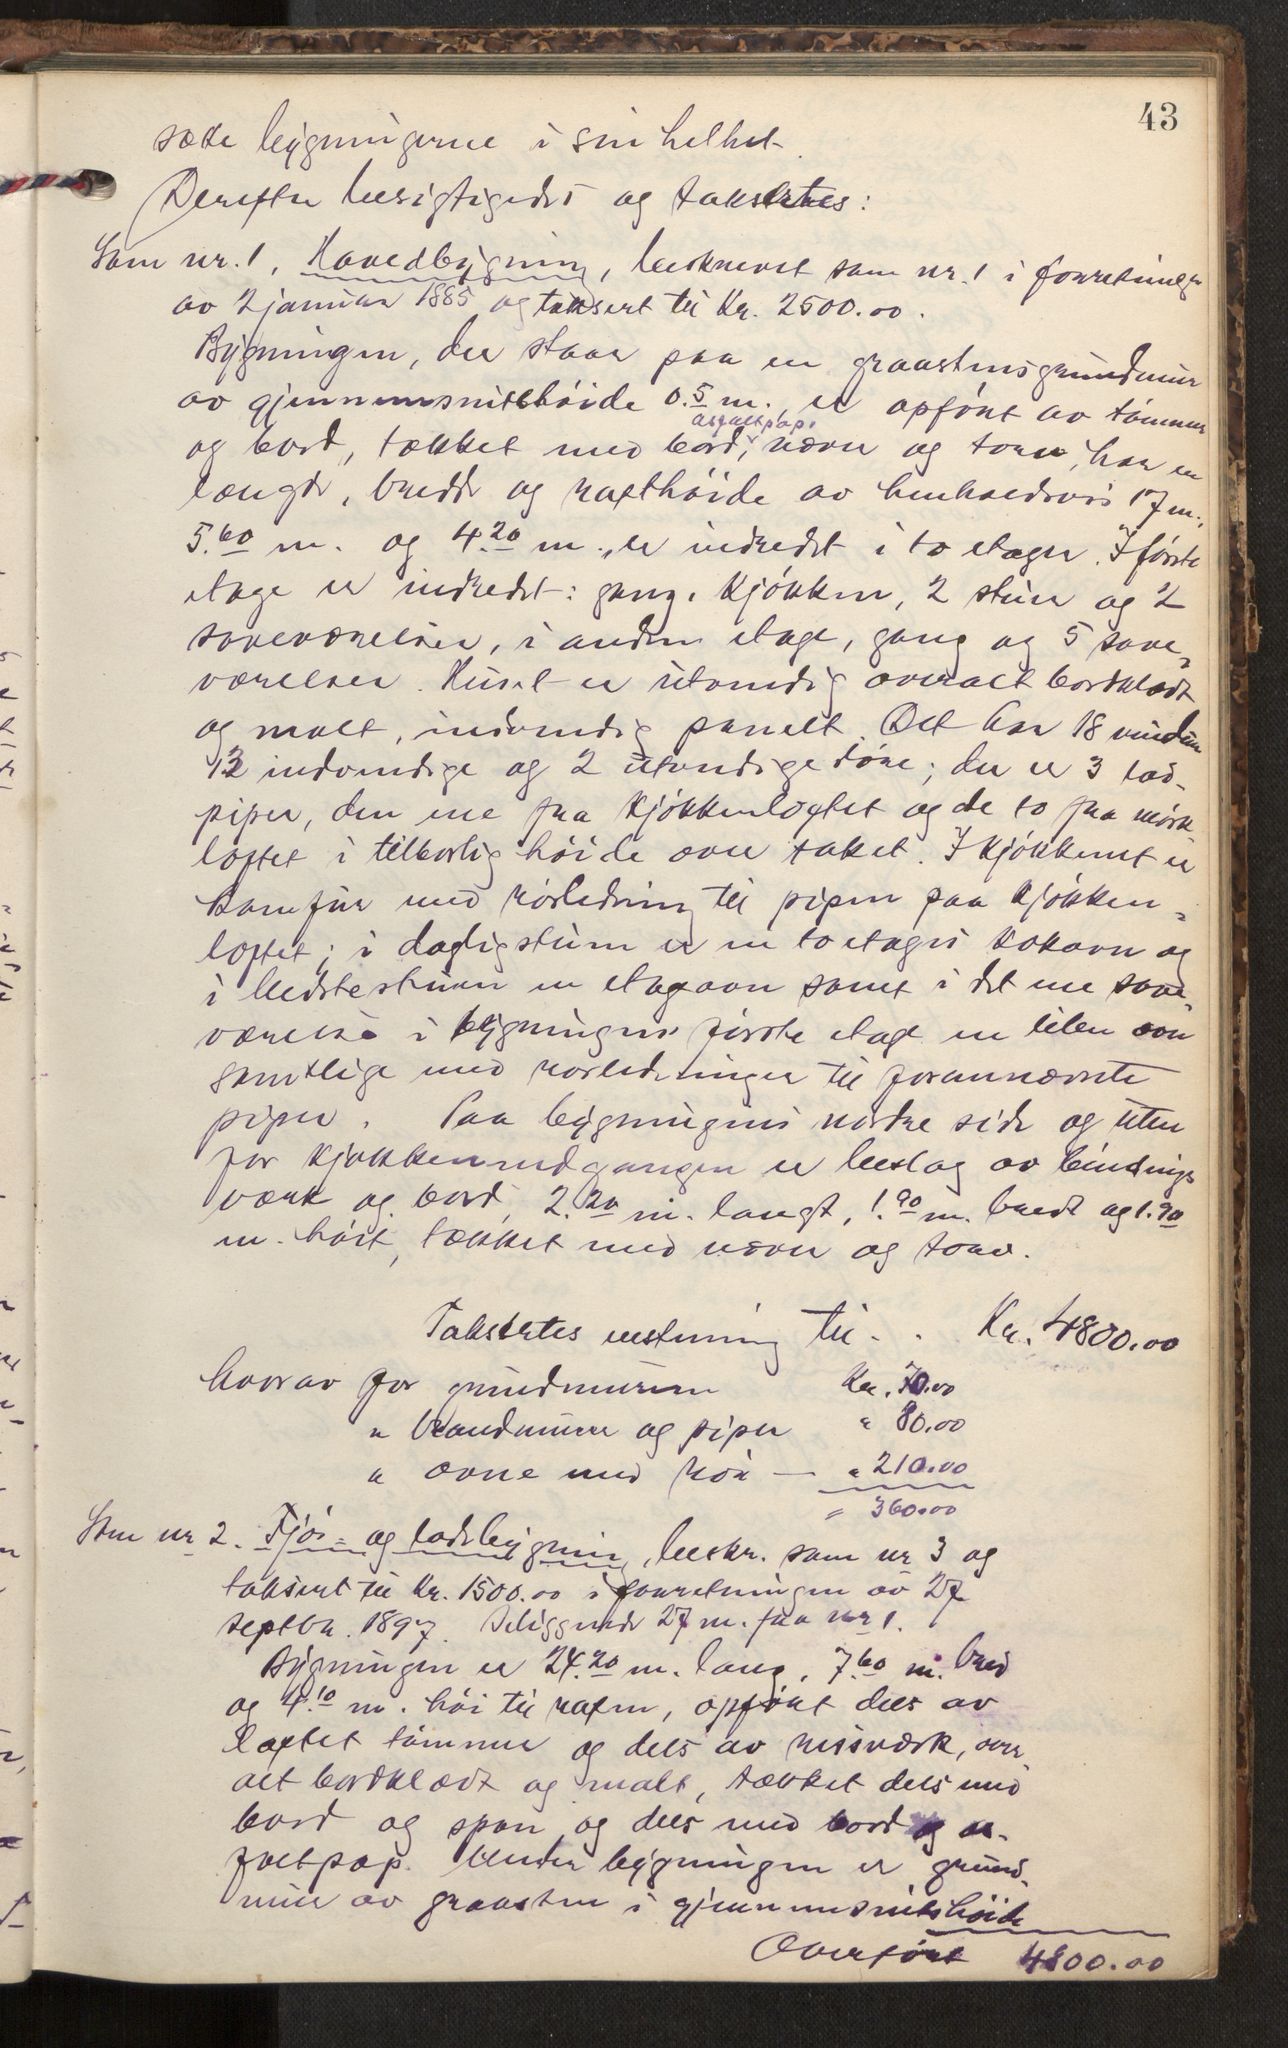 43
sætte bygningerne i sin helhet.
Derefter besigtigedes og takstertes:
Som nr. 1. Hovedbygning, beskrevet som nr. 1 i forretningen
av 2 januar 1885 og taksert til Kr. 2500.00.
Bygningen, der staar paa en graastensgrundmur
av gjennemsnitshöide 0.5 m. er opfört av tömmer
asfaltpap,
og bord, tækket med bord, næver og torv, har en
længde, bredde og rafthöide av henholdsvis 17 m.,
5.60 m. og 4.20 m., er indredet i to etager. I förste
etage er indredet: gang, kjökken, 2 stuer og 2
soveværelser, i anden etage, gang og 5 sove-
værelser. Huset er utvendig overalt bordklædt
og malt, indvendig panelt. Det har 18 vinduer
12 indvendige og 2 utvendige döre; der er 3 lod-
piper, den ene fra kjökkenloftet og de to fra mörk-
loftet i tilbörlig höide over taket. I kjökkenet er
komfur med rörledning til pipen paa kjökken-
loftet; i dagligstuen er en toetages kokovn og
i bedstestuen en etageovn samt i det ene sove-
værelse i bygningens förste etage en liten ovn
samtlige med rörledninger til forannævnte
piper. Paa bygningens nordre side og uten
for kjökkenindgangen er beslag av bindings
værk og bord, 2.20 m. langt, 1.90 m. bredt og 1.90
m. höit, tækket med næver og torv.
Takstertes verdning til . . Kr. 4800.00
hvorav for grundmuren Kr. 70.00
" brandmure og piper " 80.00
" ovne med rör — " 210.00
= 360.00
Som nr 2. Fjös- og ladebygning, beskr. som nr 3 og
taksert til Kr. 1500.00 i forretningen av 27
septbr. 1897. Beliggende 27 m. fra nr 1.
Bygningen er 24.20 m. lang, 7.60 m. bred
og 4.10 m. höi til raften, opfört dels av
laftet tömmer og dels av reisværk, over
alt bordklædt og malt, tækket dels med
bord og spon og dels med bord og as-
faltpap. Under bygningen er grund-
mur av graasten i gjennemsnitshöide
Overfört 4800.00